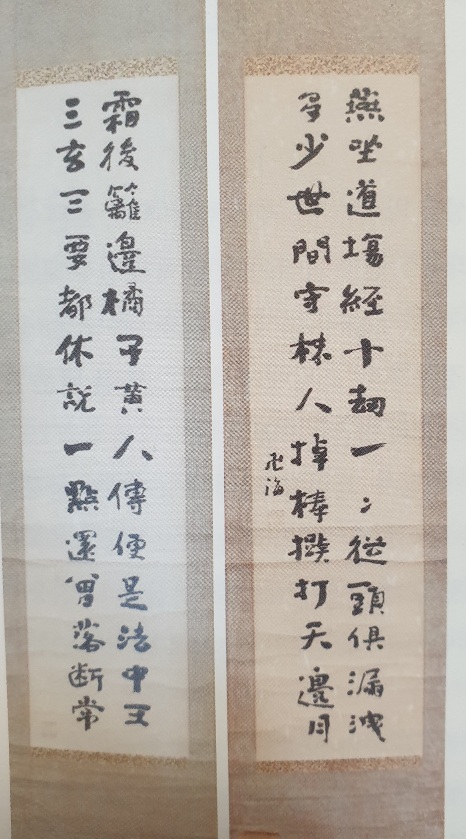 燕坐道場經十劫一〻從頭俱漏洩
多少世間守株人掉棒擬打天邊月
海
霜後籬邊橘子黃人傳便是法中王
三玄三要都休說一點還曾落斷常